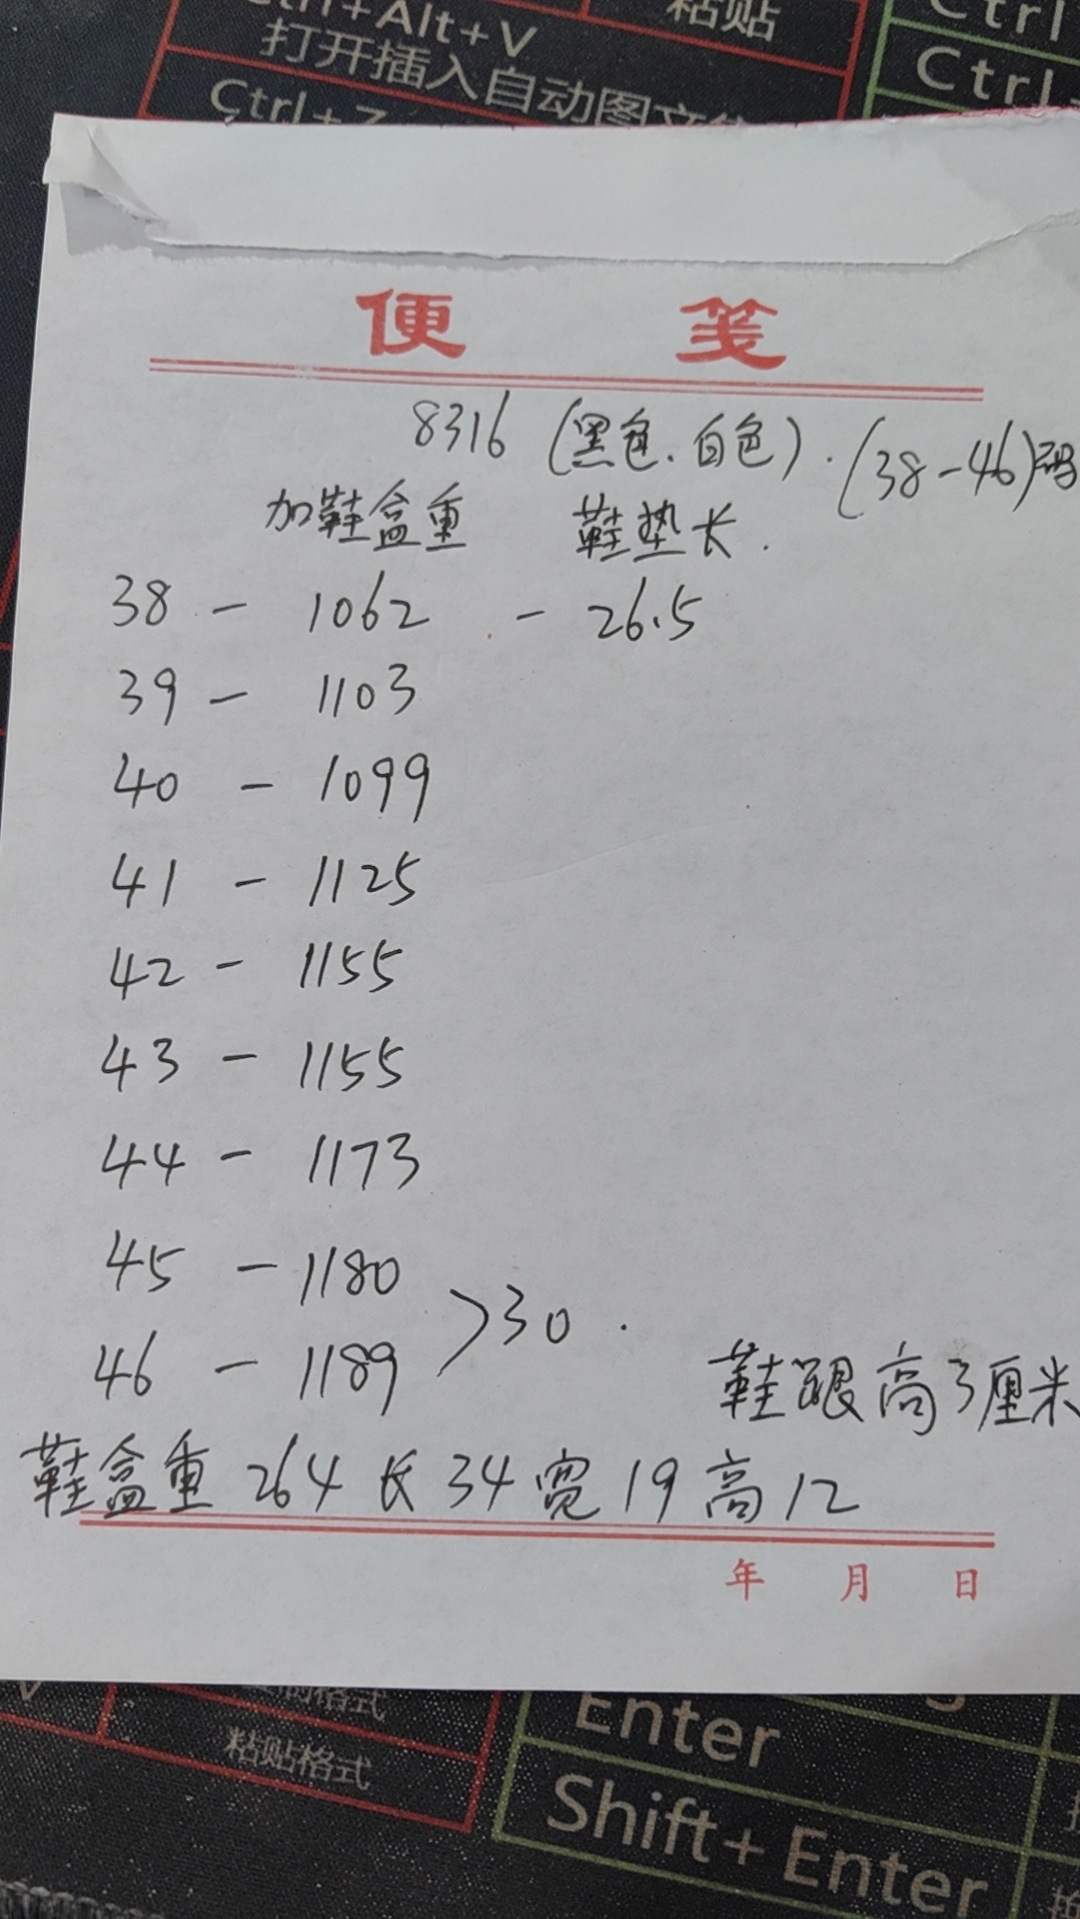 Ctrl+Alt+V
粘贴
打开插入自动图文集
Ctrl+Z
Ctrl
Ctrl+
便 笺
8316 (黑色、白色). (38-46)码
加鞋盒重 鞋垫长.
38 - 1062 - 26.5
39 - 1103
40 - 1099
41 - 1125
42 - 1155
43 - 1155
44 - 1173
45 - 1180
>30.
46 - 1189
鞋跟高3厘米
鞋盒重 264 长 34 宽 19 高 12
年 月 日
格式
粘贴格式
Enter
Shift+Enter